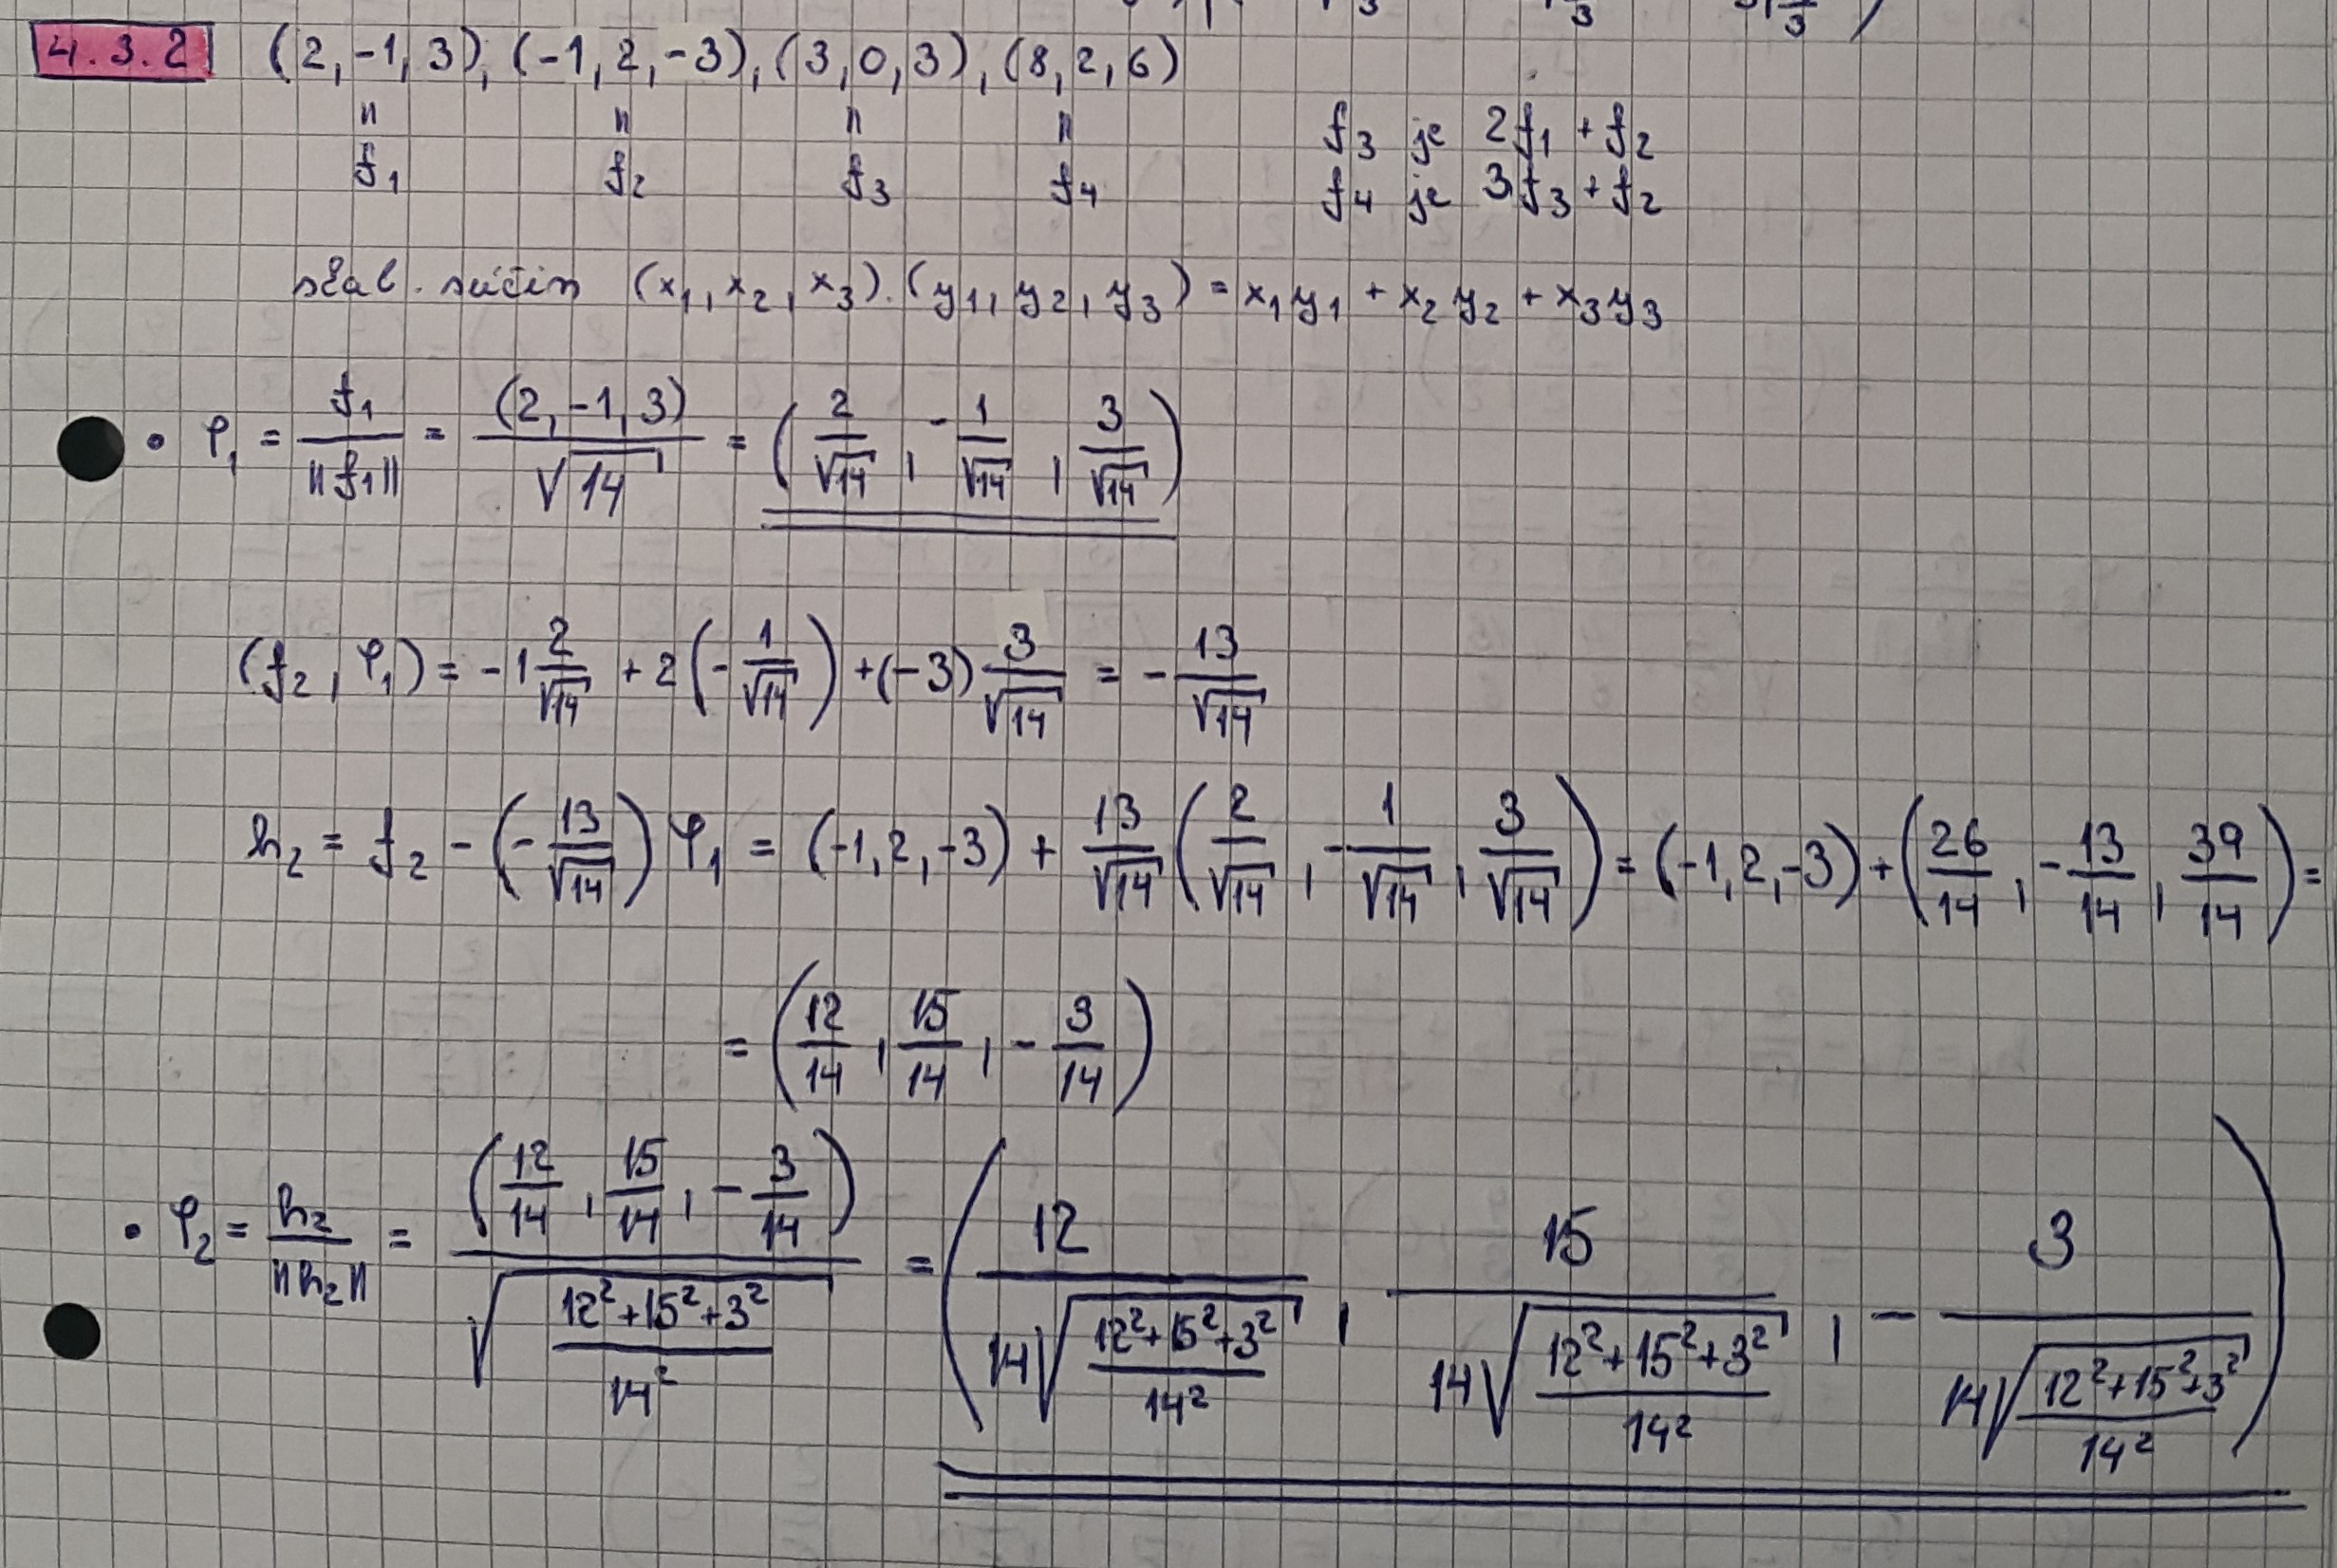 4.3.2 (2,-1,3), (-1,2,-3), (3,0,3), (8,2,6)
" " " "
f₁ f₂ f₃ f₄
f₃ je 2f₁ + f₂
f₄ je 3f₃ + f₂
skal. súčin (x₁, x₂, x₃).(y₁, y₂, y₃) = x₁y₁ + x₂y₂ + x₃y₃
• φ₁ = f₁/||f₁|| = (2,-1,3)/√14 = (2/√14, -1/√14, 3/√14)
(f₂, φ₁) = -1 2/√14 + 2(-1/√14) + (-3) 3/√14 = -13/√14
h₂ = f₂ - (-13/√14) φ₁ = (-1,2,-3) + 13/√14 (2/√14, -1/√14, 3/√14) = (-1,2,-3) + (26/14, -13/14, 39/14) =
= (12/14, 15/14, -3/14)
• φ₂ = h₂/||h₂|| = (12/14, 15/14, -3/14)/√((12²+15²+3²)/14²) = (12/(14√((12²+15²+3²)/14²)), 15/(14√((12²+15²+3²)/14²)), -3/(14√((12²+15²+3²)/14²)))